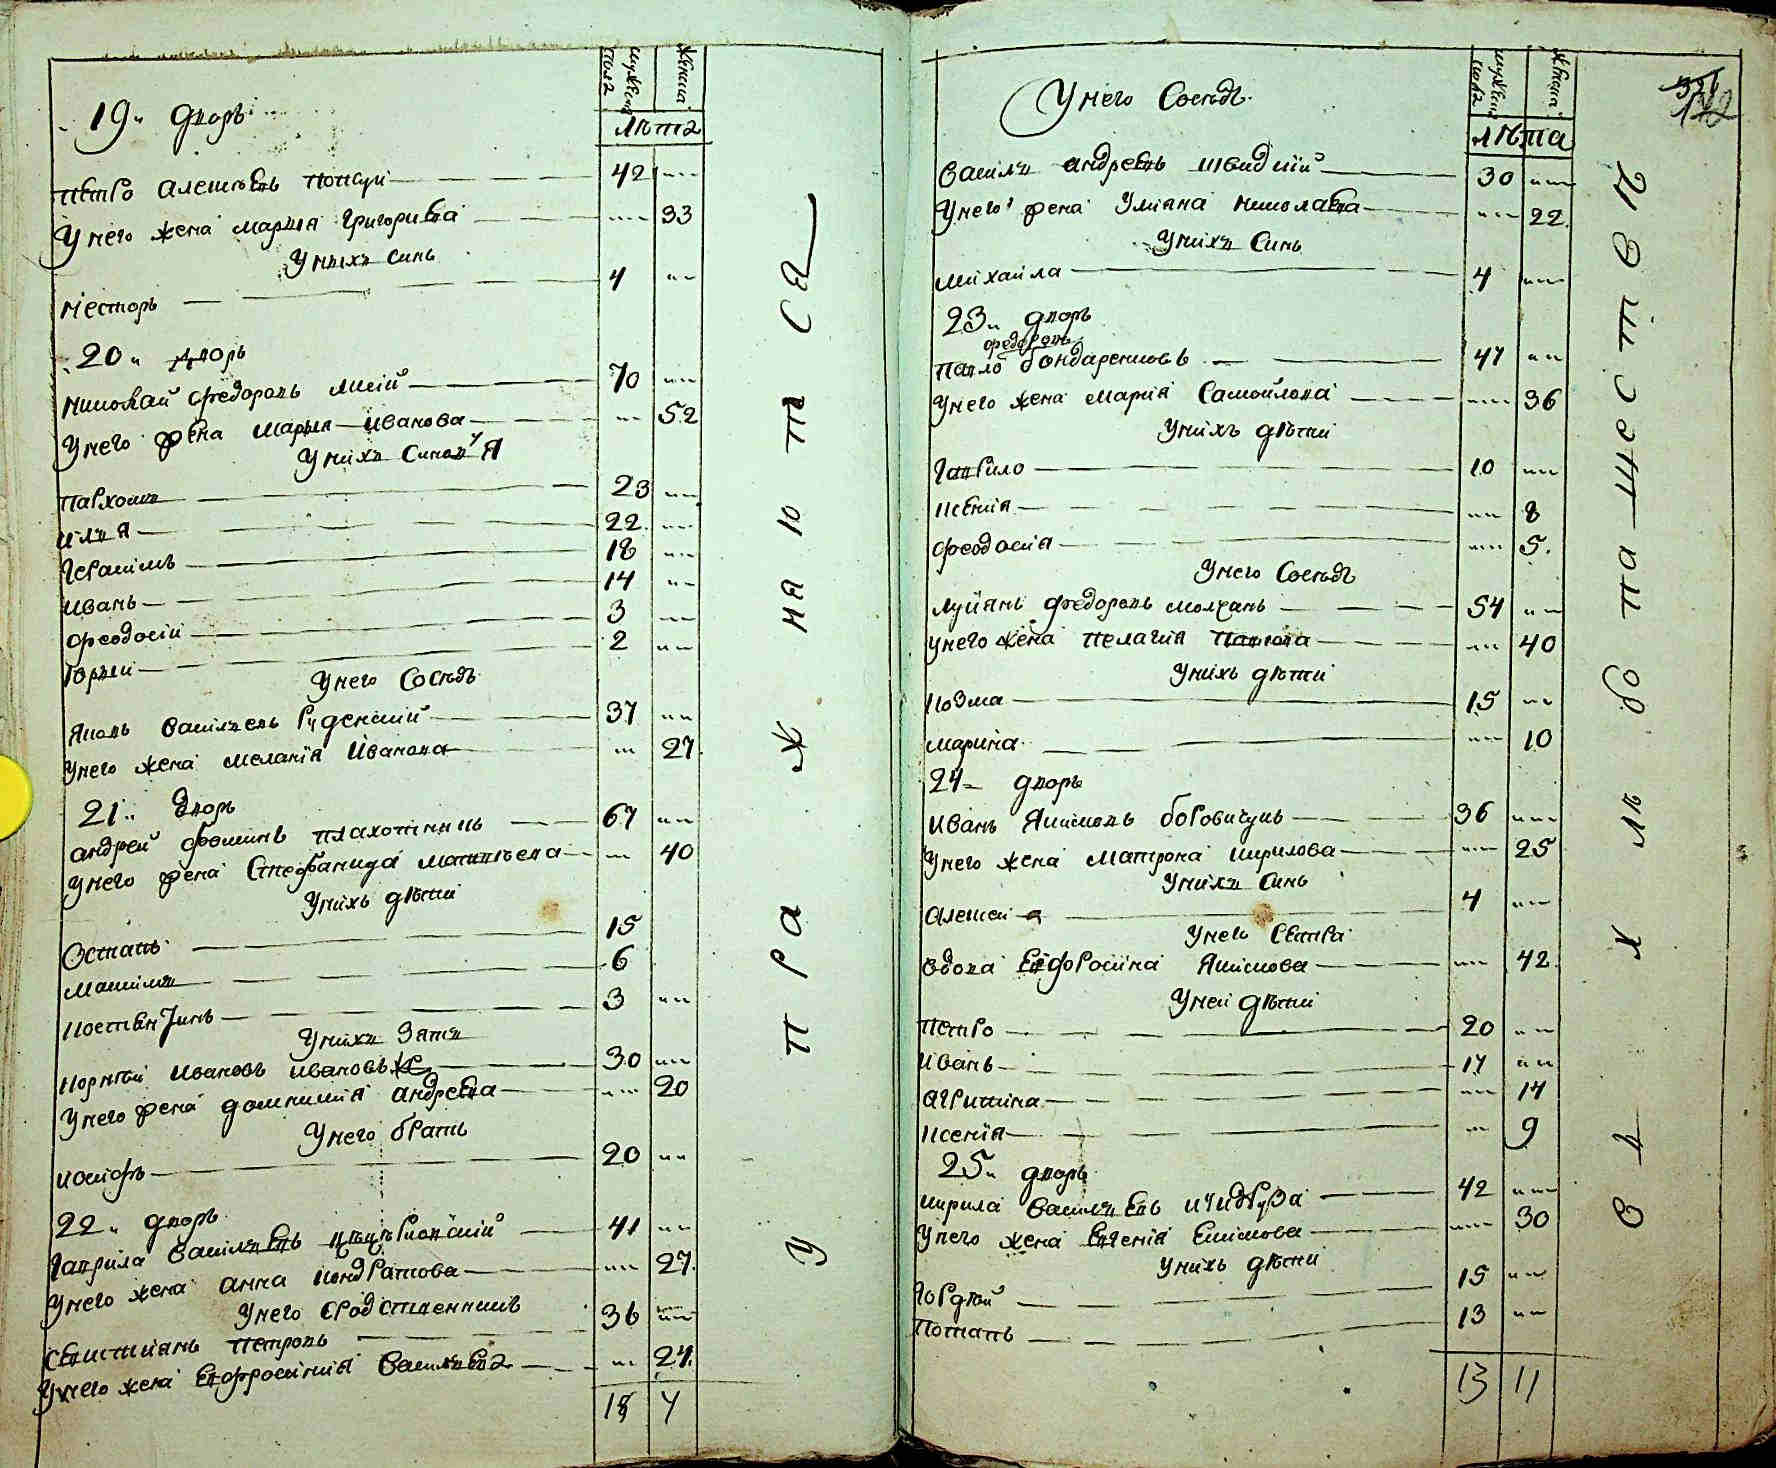 мужеска
пола
женска
лѣта
19" дворъ
Петро Алексѣевъ Поп
У него жена Марья Григориева 33
42
У нихъ синъ
Несторъ 4
20" дворъ
Николай Федоровъ Лисій 70
У него жена Марья Иванова 52
У нихъ синовъя
Пархомъ 23
Илъя 22
Герасимъ 18
Иванъ 14
Феодосій 3
Горъгій 2
У него Сосѣдъ
Яковъ Василъевъ Руденкий 37
У него жена Меланія Иванова 27
21" дворъ
Андрей Фоминъ Плахотникъ 67
У него жена Стефанида Матвѣева 40
У нихъ дѣтти
Остапъ 15
Максимъ 6
Костентинъ 3
У нихъ Зятъ
Корнѣй Ивановъ Ивановъ 30
У него жена Домникия Андреева 20
У него братъ
Иосифъ 20
22" дворъ
Гаврила Василъевъ 41
У него жена Анна Кондратова 27
У него сродственникъ
Севистиянъ Петровъ 36
У него жена Евфросиния Василъева 24
18 4
У П Р А Ж Н А Ю Т С Я
мужеска
пола
женска
лѣта
У него Сосѣдъ
Василъ Андреевъ Швидкій 30
У него жена Улияна Николаева 22
У нихъ Синъ
Михайла 4
23" дворъ
Федоровъ
Павло Бондаренковъ 47
У него жена Мария Самойлова 36
У нихъ дѣтти
Гаврило 10
Ксения 8
Феодосия 5
У него Сосѣдъ
Лукянъ Федоровъ Молчанъ 54
У него жена Пелагия Павлова 40
У нихъ дѣтти
Козма 15
Марина 10
24" дворъ
Иванъ Якимовъ Боровичукъ 36
У него жена Матрона Кирилова 25
У нихъ Синъ
Алексей 4
У него Сестра
вдова Евфросина Якимова 42
У ней дѣтти
Петро 20
Иванъ 17
Агрипина 14
Ксения 9
25" дворъ
Кирила Василъевъ 42
У него жена Евгения Екимова 30
У нихъ дѣтти
Гордѣй 15
Потапъ 13
13 11
В Д Х Л Ѣ Б О П А Ш Е С Т В Ѣ